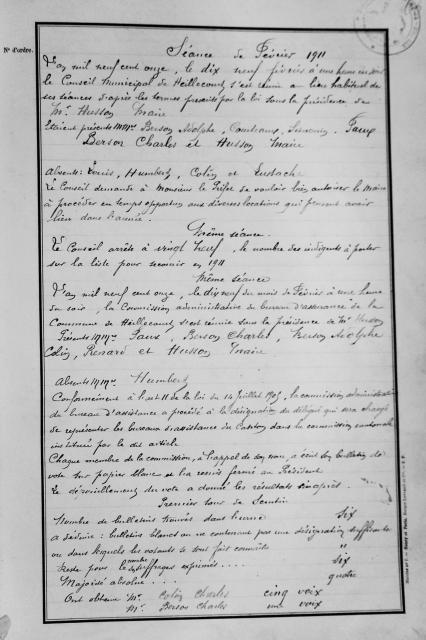 N° d'ordre.
Séance de Février 1911
L'an mil neuf cent onze, le dix neuf février à une heure du soir
le Conseil Municipal de Heillecourt, s'est réuni au lieu habituel de
ses séances d'après les termes prescrits par la loi sous la présidence de
Mr Husson Maire
Etaient présents MMrs Berson Adolphe, Faux
Berson Charles et Husson Maire
Absents: Louis, Humbert, Colin et Eustache
Le Conseil demande à Monsieur le Préfet de vouloir bien autoriser le Maire
à procéder en temps opportun aux diverses locations qui peuvent avoir
lieu dans l'année.
Même séance.
Le Conseil arrête à vingt neuf, le nombre des indigents à porter
sur la liste pour secourir en 1911
Même séance
L'an mil neuf cent onze, le dix neuf du mois de Février à une heure
du soir, la Commission administrative du bureau d'assurance de la
Commune de Heillecourt s'est réunie sous la présidence de Mr Husson
Présents MMrs Faux, Berson Charles, Berson Adolphe
Colin, Renard et Husson Maire
Absents MMrs Humbert
Conformément à l'art 11 de la loi du 14 Juillet 1905, la commission administrative
du bureau d'assistance a procédé à la désignation du délégué qui sera chargé
de représenter les bureaux d'assistance du Canton dans la commission cantonale
instituée par le dit article
Chaque membre de la commission, à l'appel de son nom, a écrit son bulletin de
vote sur papier blanc et l'a remis fermé au Président
Le dépouillement du vote a donné les résultats ci après.
Premier tour de Scrutin
Nombre de bulletins trouvés dans l'urne six
A déduire: bulletins blancs ou ne contenant pas une désignation suffisante
ou dans lesquels les votants se sont fait connaître "
Reste pour le nombre des suffrages exprimés.... six
Majorité absolue.... quatre
Ont obtenu Mr Colin Charles cinq voix
Mr Berson Charles une voix